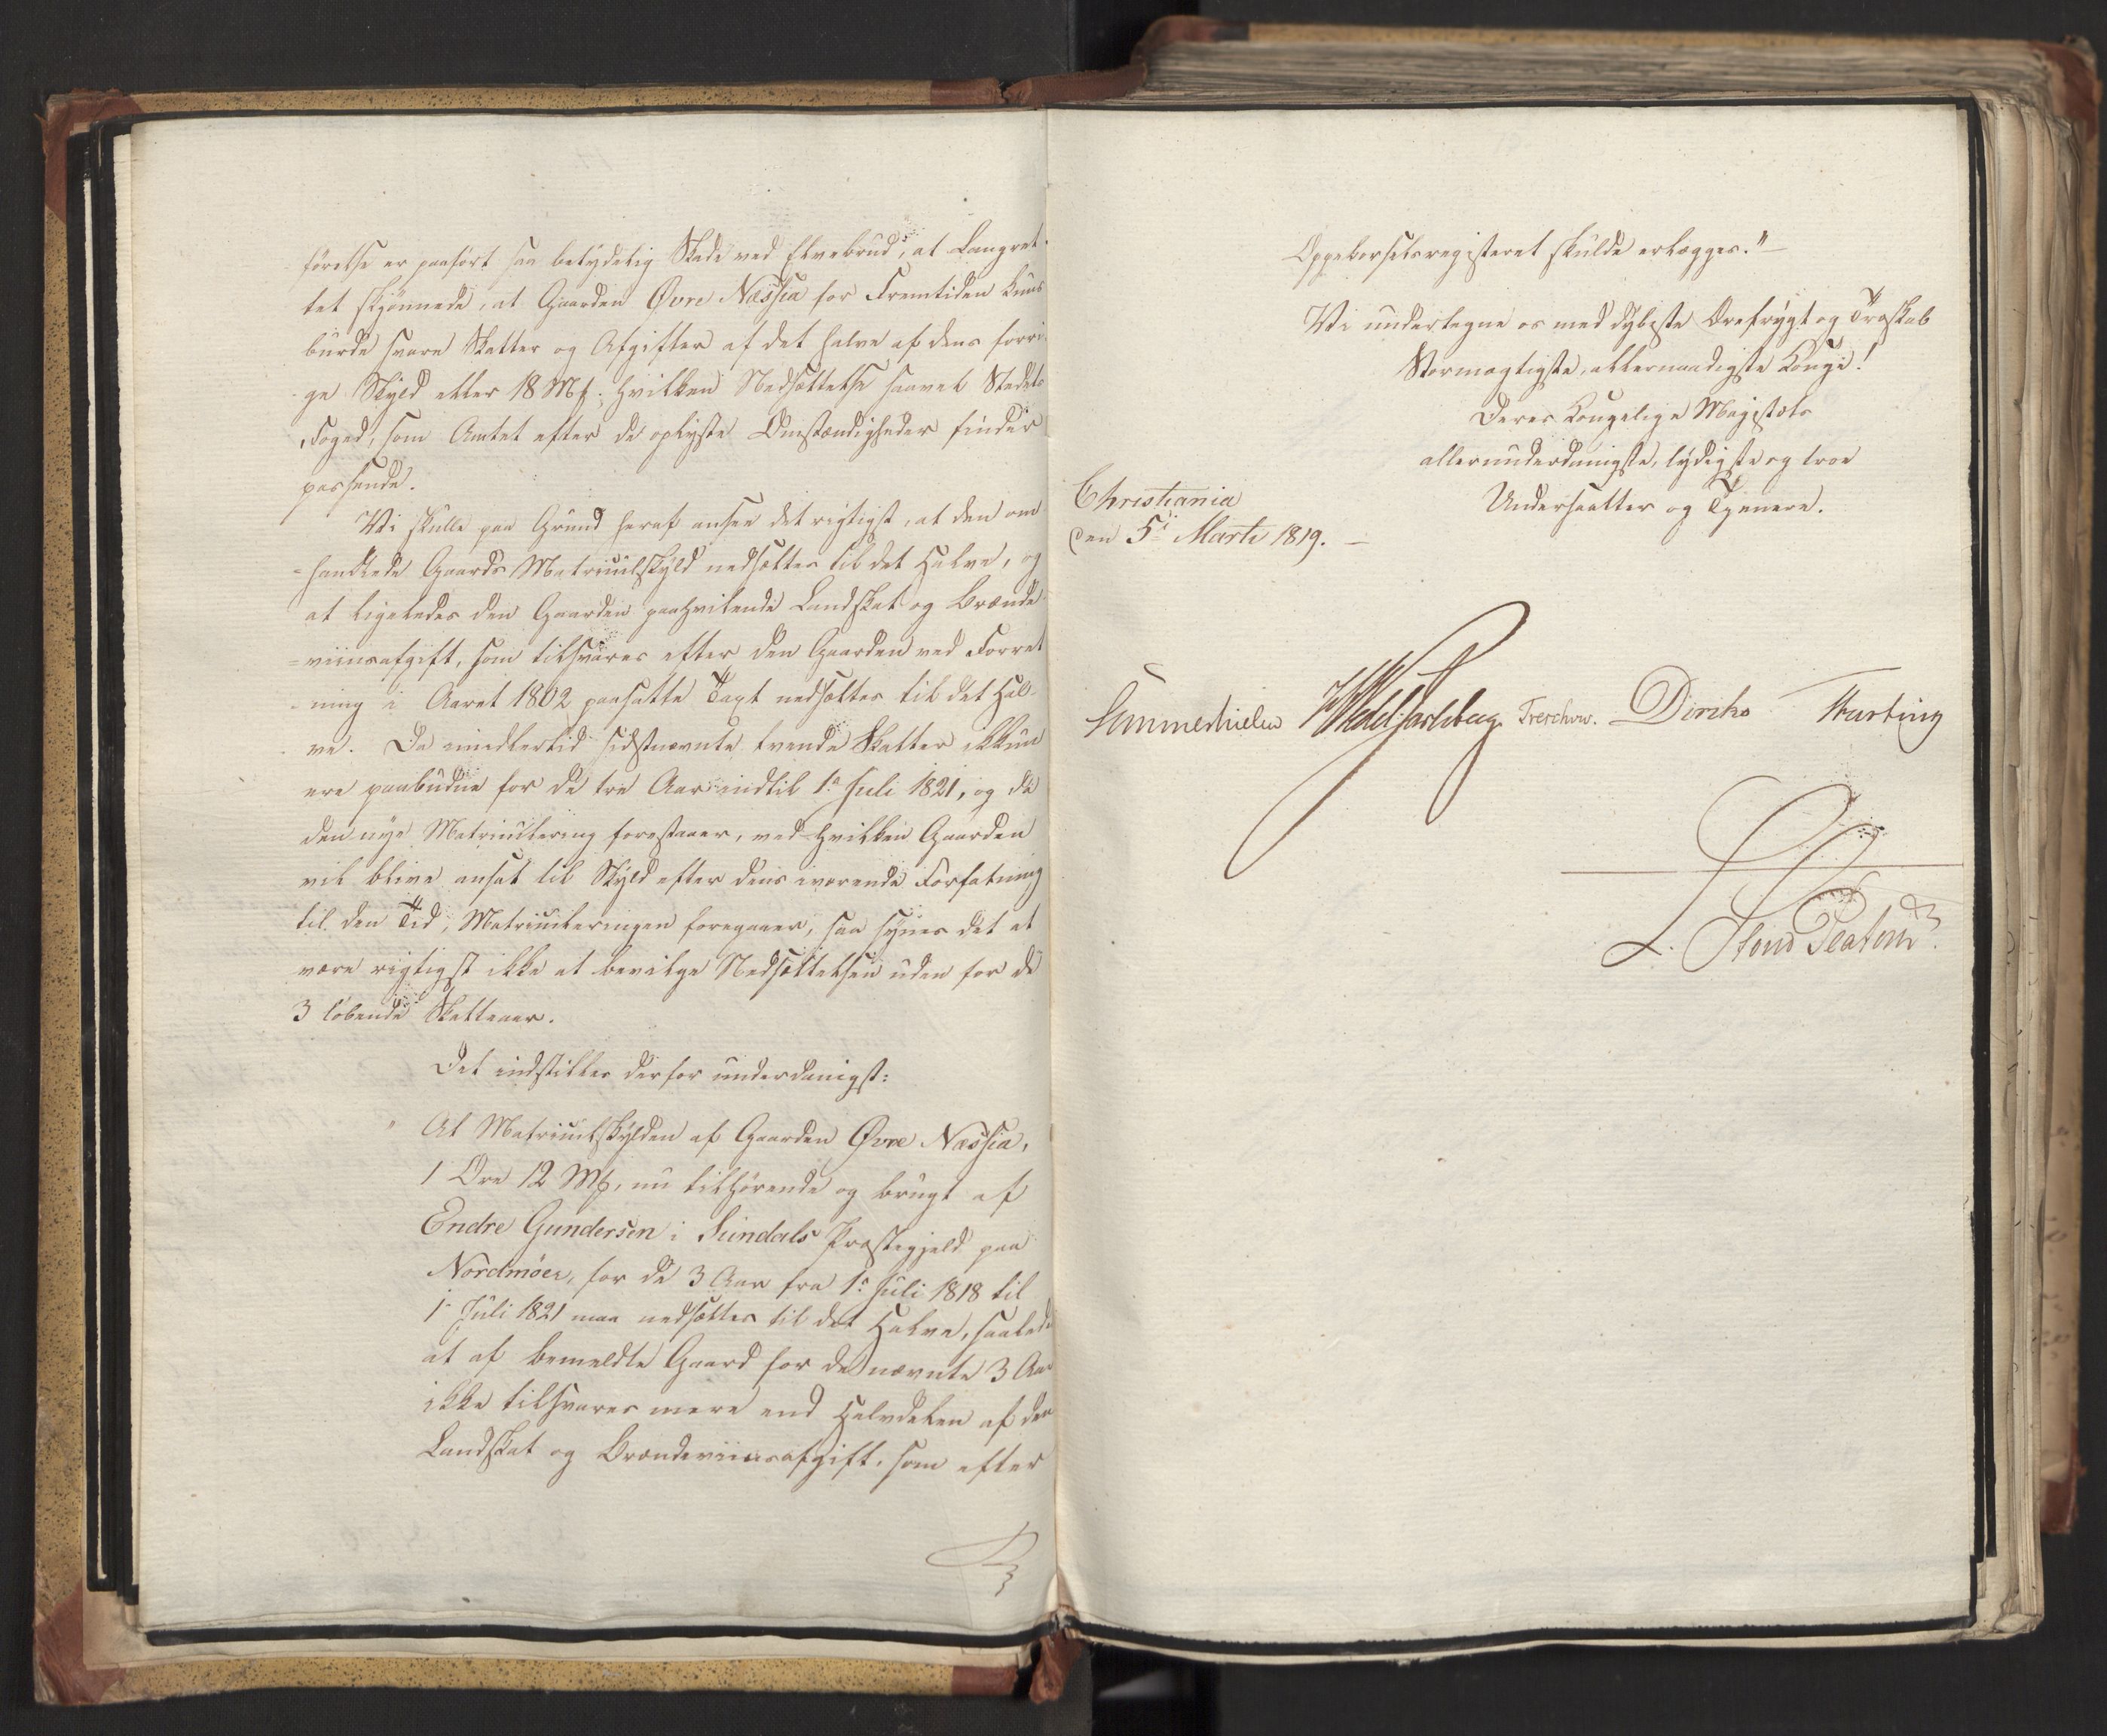 førelse er paaført saa betydelig Skade ved Elvebrud, at Laugret-
tet skjønnede, at Gaarden Øvre Næssia for Fremtiden kuns
burde svare Skatter og Afgifter af det halve af dens forri-
ge Skyld eller 18 Mk; hvilken Nedsættelse saavel Stedets
Foged, som Amtet efter de oplyste Omstændigheder finder
passende.
Vi skulle paa Grund heraf ansee det rigtigst, at den om-
handlede Gaards Matriculskyld nedsættes til det Halve, og
at ligeledes den Gaarden paahvilende Landskat og Brænde-
viinsafgift, som tilsvares efter den Gaarden ved Forret-
ning i Aaret 1802 paasatte Taxt nedsættes til det Hal-
ve. Da imidlertid sidstnævnte tvende Skatter ikkun
ere paabudne for de tre Aar indtil 1ste Juli 1821, og da
den nye Matriculering forestaaer, ved hvilken Gaarden
vil blive ansat til Skyld efter dens værende Forfatning
til den Tid, Matriculeringen foregaaer, saa synes det at
være rigtigst ikke at bevilge Nedsættelsen uden for de
3 løbende Skatteaar.
Det indstilles derfor underdanigst:
" At Matriculskylden af Gaarden Øvre Næssia,
1 Øre 12 Mk, nu tilhørende og brugt af
Endre Gundersen i Sundals Præstegjeld paa
Nordmöer, for de 3 Aar fra 1ste Juli 1818 til
1ste Juli 1821 maa nedsættes til det Halve, saaledes
at af bemeldte Gaard for de nævnte 3 Aar
ikke tilsvares mere end Halvdelen af den
Landskat og Brændeviinsafgift, som efter
Oppebørselsregisteret skulde erlægges."
Vi undertegne os med dybeste Ærefrygt og Troskab
Stormægtigste, allernaadigste Konge!
Deres Kongelige Majestæts
allerunderdanigste, lydigste og troe
Undersaatter og Tjenere.
Christiania
den 5te Marti 1819.
Sommerhielm HWedelJarlsberg Treschow. Diriks Hasting
L. Stoud Platou